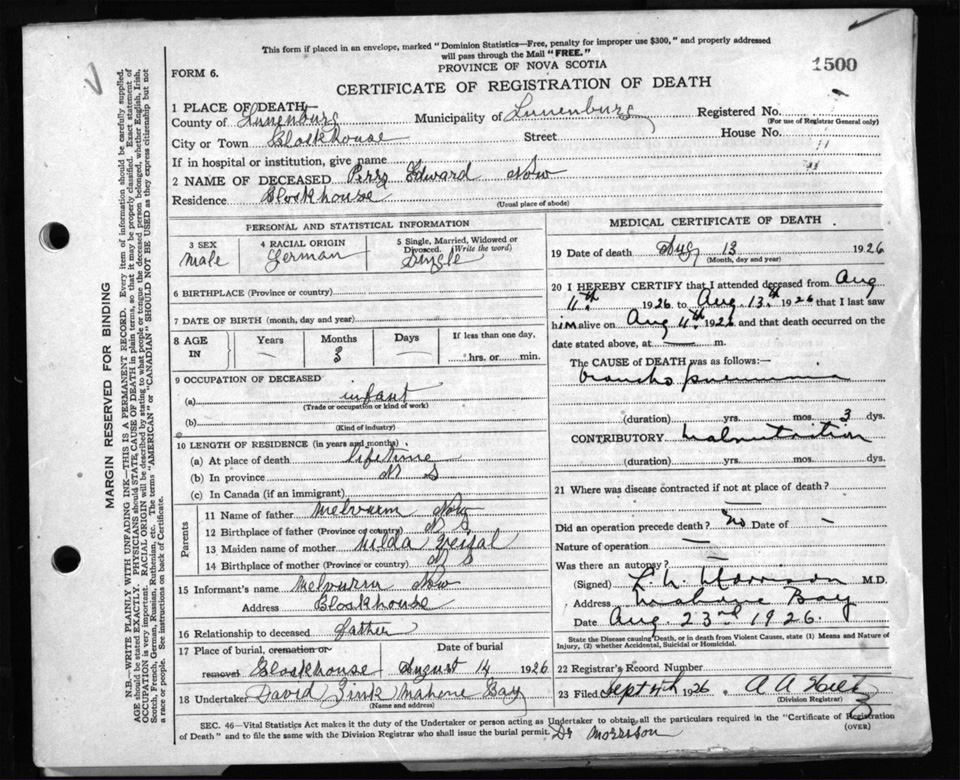 This form if placed in an envelope, marked "Dominion Statistics—Free, penalty for improper use $300," and properly addressed
will pass through the Mail "FREE."
PROVINCE OF NOVA SCOTIA
1500
FORM 6.
CERTIFICATE OF REGISTRATION OF DEATH
1 PLACE OF DEATH—
County of Lunenburg Municipality of Lunenburg Registered No.
(For use of Registrar General only)
City or Town Blockhouse Street House No.
If in hospital or institution, give name
2 NAME OF DECEASED Perry Edward Now
Residence Blockhouse
(Usual place of abode)
PERSONAL AND STATISTICAL INFORMATION
3 SEX 4 RACIAL ORIGIN 5 Single, Married, Widowed or
Divorced. (Write the word)
Male German Single
6 BIRTHPLACE (Province or country)
7 DATE OF BIRTH (month, day and year)
8 AGE IN Years Months Days If less than one day,
3 hrs. or min.
9 OCCUPATION OF DECEASED
(a) infant
(Trade or occupation or kind of work)
(b)
(Kind of industry)
10 LENGTH OF RESIDENCE (in years and months)
(a) At place of death lifetime
(b) In province N S
(c) In Canada (if an immigrant)
Parents
11 Name of father Melvurn Now
12 Birthplace of father (Province or country) N S
13 Maiden name of mother Nilda
14 Birthplace of mother (Province or country) N S
15 Informant's name Melvurn Now
Address Blockhouse
16 Relationship to deceased father
17 Place of burial, cremation or removal Date of burial
Blockhouse August 14 1926
18 Undertaker David Zink Mahone Bay
(Name and address)
MEDICAL CERTIFICATE OF DEATH
19 Date of death Aug 13 1926
(Month, day and year)
20 I HEREBY CERTIFY that I attended deceased from Aug
11th 1926 to Aug. 13th 1926 that I last saw
him alive on Aug 11th 1926 and that death occurred on the
date stated above, at m.
The CAUSE of DEATH was as follows:—
broncho pneumonia
(duration) yrs. mos. 3 dys.
CONTRIBUTORY Malnutrition
(duration) yrs. mos. dys.
21 Where was disease contracted if not at place of death? —
Did an operation precede death? No Date of —
Nature of operation —
Was there an autopsy? —
(Signed) Morrison M.D.
Address Mahone Bay
Date Aug. 23rd 1926.
State the Disease causing Death, or in death from Violent Causes, state (1) Means and Nature of
Injury, (2) whether Accidental, Suicidal or Homicidal.
22 Registrar's Record Number
23 Filed Sept 4th 1926 A A
(Division Registrar)
SEC. 46—Vital Statistics Act makes it the duty of the Undertaker or person acting as Undertaker to obtain all the particulars required in the "Certificate of Registration
of Death" and to file the same with the Division Registrar who shall issue the burial permit. Dr Morrison
(OVER)
MARGIN RESERVED FOR BINDING
N.B.—WRITE PLAINLY WITH UNFADING INK—THIS IS A PERMANENT RECORD. Every item of information should be carefully supplied.
AGE should be stated EXACTLY. PHYSICIANS should STATE CAUSE OF DEATH in plain terms, so that it may be properly classified. Exact statement of
OCCUPATION is very important. RACIAL ORIGIN will be described by stating to what people or tongue the deceased person belonged, whether English, Irish,
Scotch, French, German, Russian, Ruthenian, etc. The terms "AMERICAN" or "CANADIAN" SHOULD NOT BE USED as they express citizenship but not
a race or people. See instructions on back of Certificate.